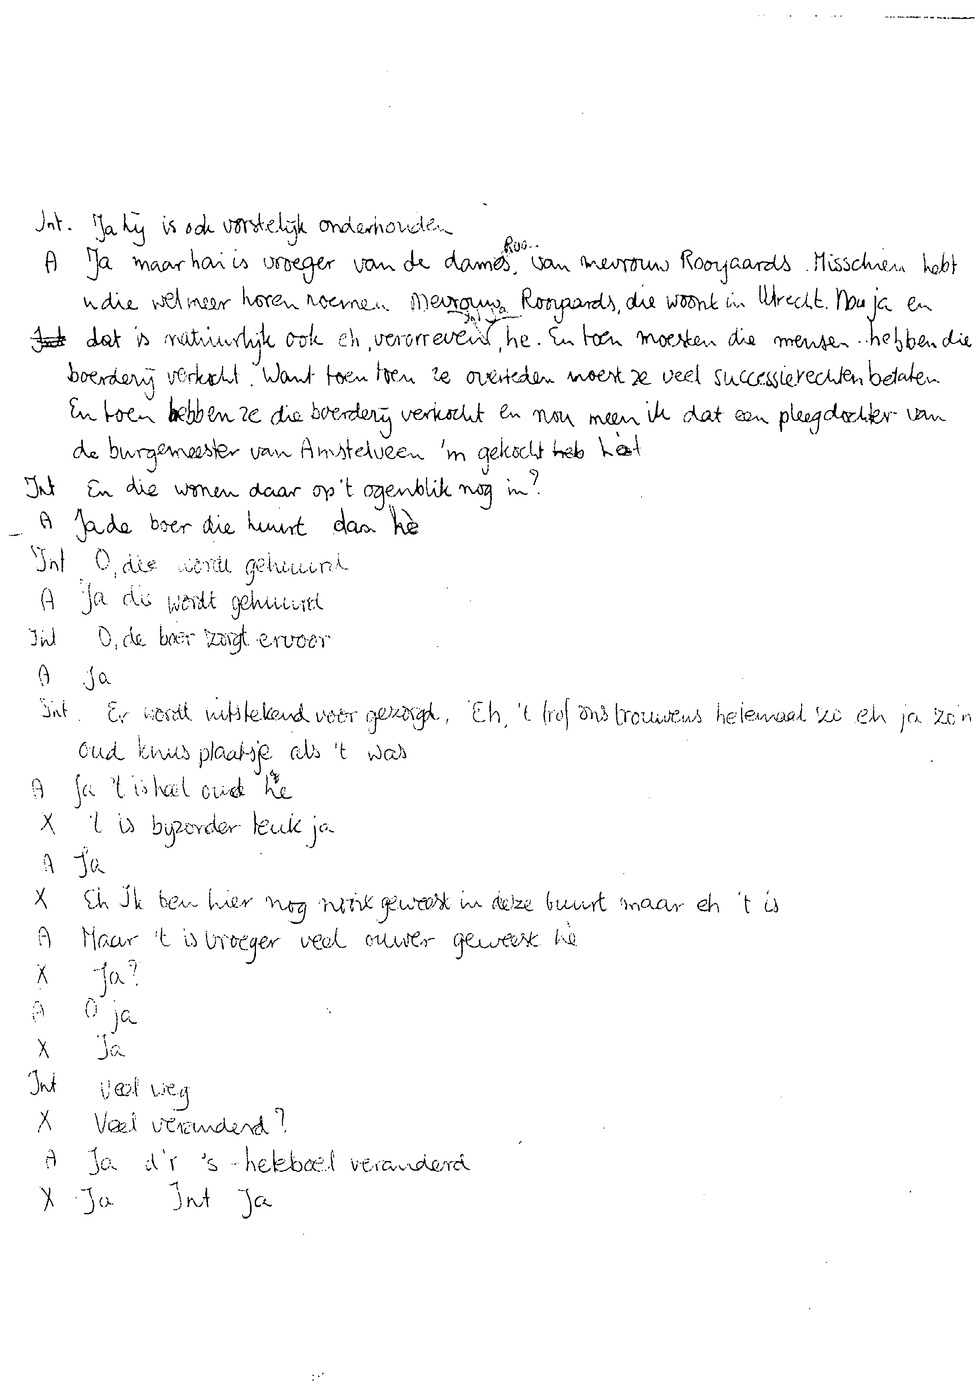 Int. Ja hij is ook vorstelijk onderhouden
Roo..
A Ja maar hai is vroeger van de dames, van mevrouw Rooyaards. Misschien hebt
u die wel meer horen noemen. Mevrouw Rooyaards, die woont in Utrecht. Nou ja en
dat is natuurlijk ook eh, , he. En toen moesten die mensen .. hebben die
boerderij verkocht. Want toen toen ze overleden moest ze veel successierechten betalen
En toen hebben ze die boerderij verkocht en nou meen ik dat een pleegdochter van
de burgemeester van Amstelveen 'm gekocht heb hèt
Int En die wonen daar op 't ogenblik nog in?
A Ja de boer die huurt dan hè
Int O, die wordt gehuurd
A Ja die wordt gehuurd
Int O, de boer zorgt ervoor
A Ja
Int. Er wordt uitstekend voor gezorgd, Eh, 't trof ons trouwens helemaal zo eh ja zo'n
oud knus plaatsje als 't was
A Ja 't is heel oud hè
X 't is byzonder leuk ja
A Ja
X Eh Ik ben hier nog nooit geweest in deze buurt maar eh 't is
A Maar 't is vroeger veel ouwer geweest hè
X Ja?
A O ja
X Ja
Int Veel weg
X Veel veranderd?
A Ja d'r 's heleboel veranderd
X Ja Int Ja